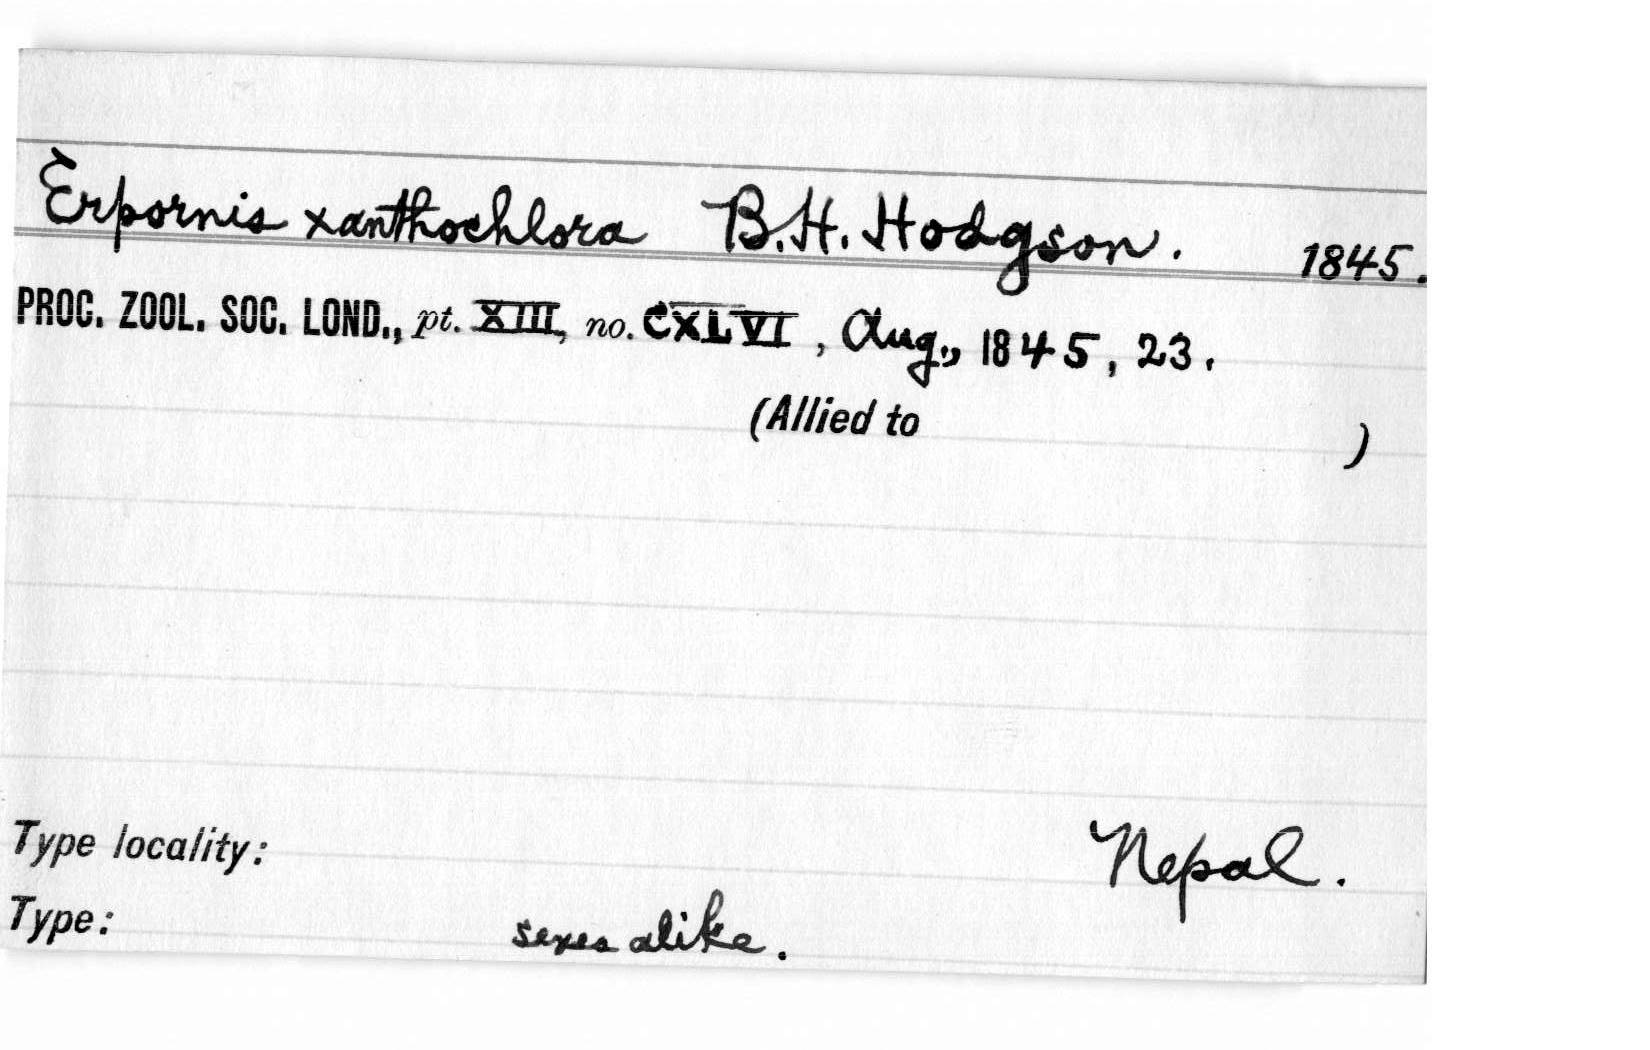 Erpornis xanthochlora B.H. Hodgson. 1845.
PROC. ZOOL. SOC. LOND., pt. XIII, no. CXLVI, Aug., 1845, 23.
(Allied to )
Type locality: Nepal.
Type: sexes alike.